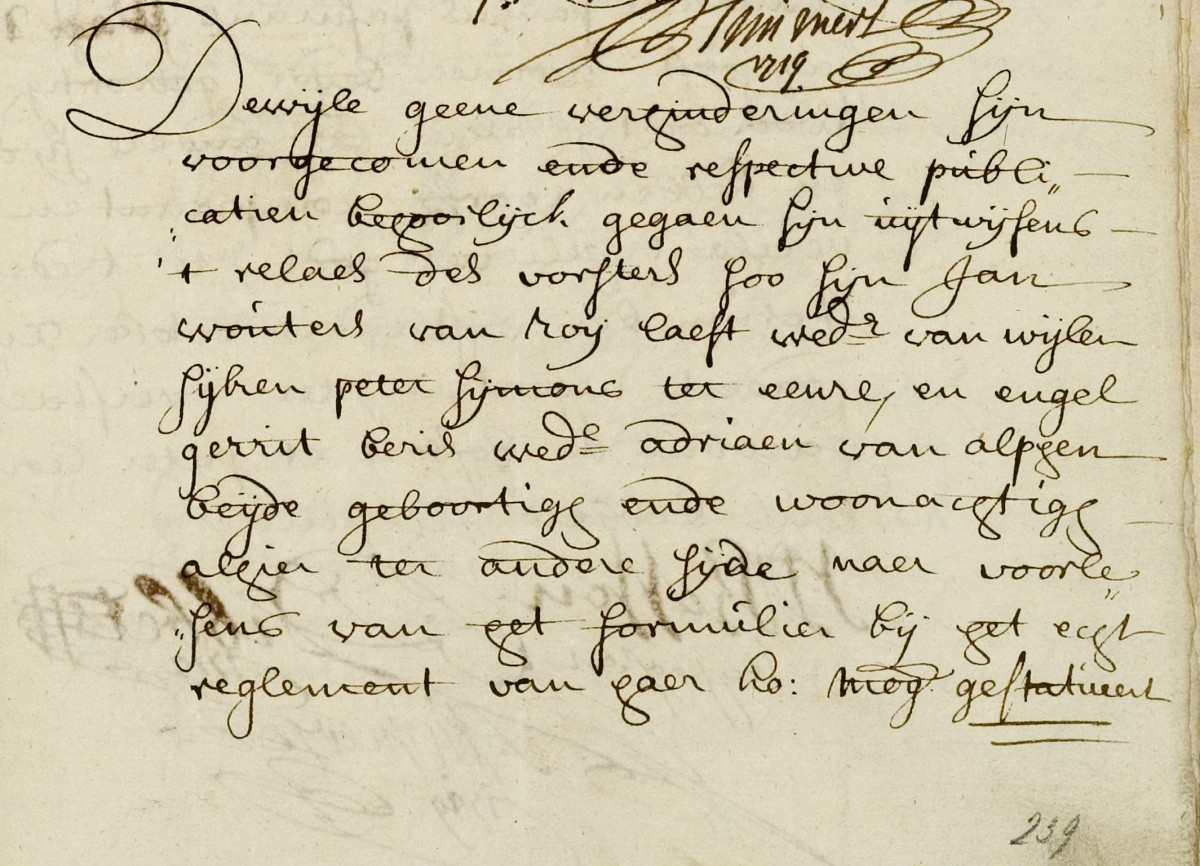 1719
Dewijle geene verhinderingen sijn
voorgecomen ende respective publi„
„catien behoorlijck gegaen sijn uijtwijsens
't relaes des vorsters soo sijn Jan
wouters van Roij laest wedr van wijlen
sijken peter symons ter eenre, en engel
gerrit beris wede adriaen van alphen
beijde geboortigh ende woonachtigh
alhier ter andere sijde naer voorle„
„sens van het formulier bij het echt
reglement van haer ho: mog gestatueert
239